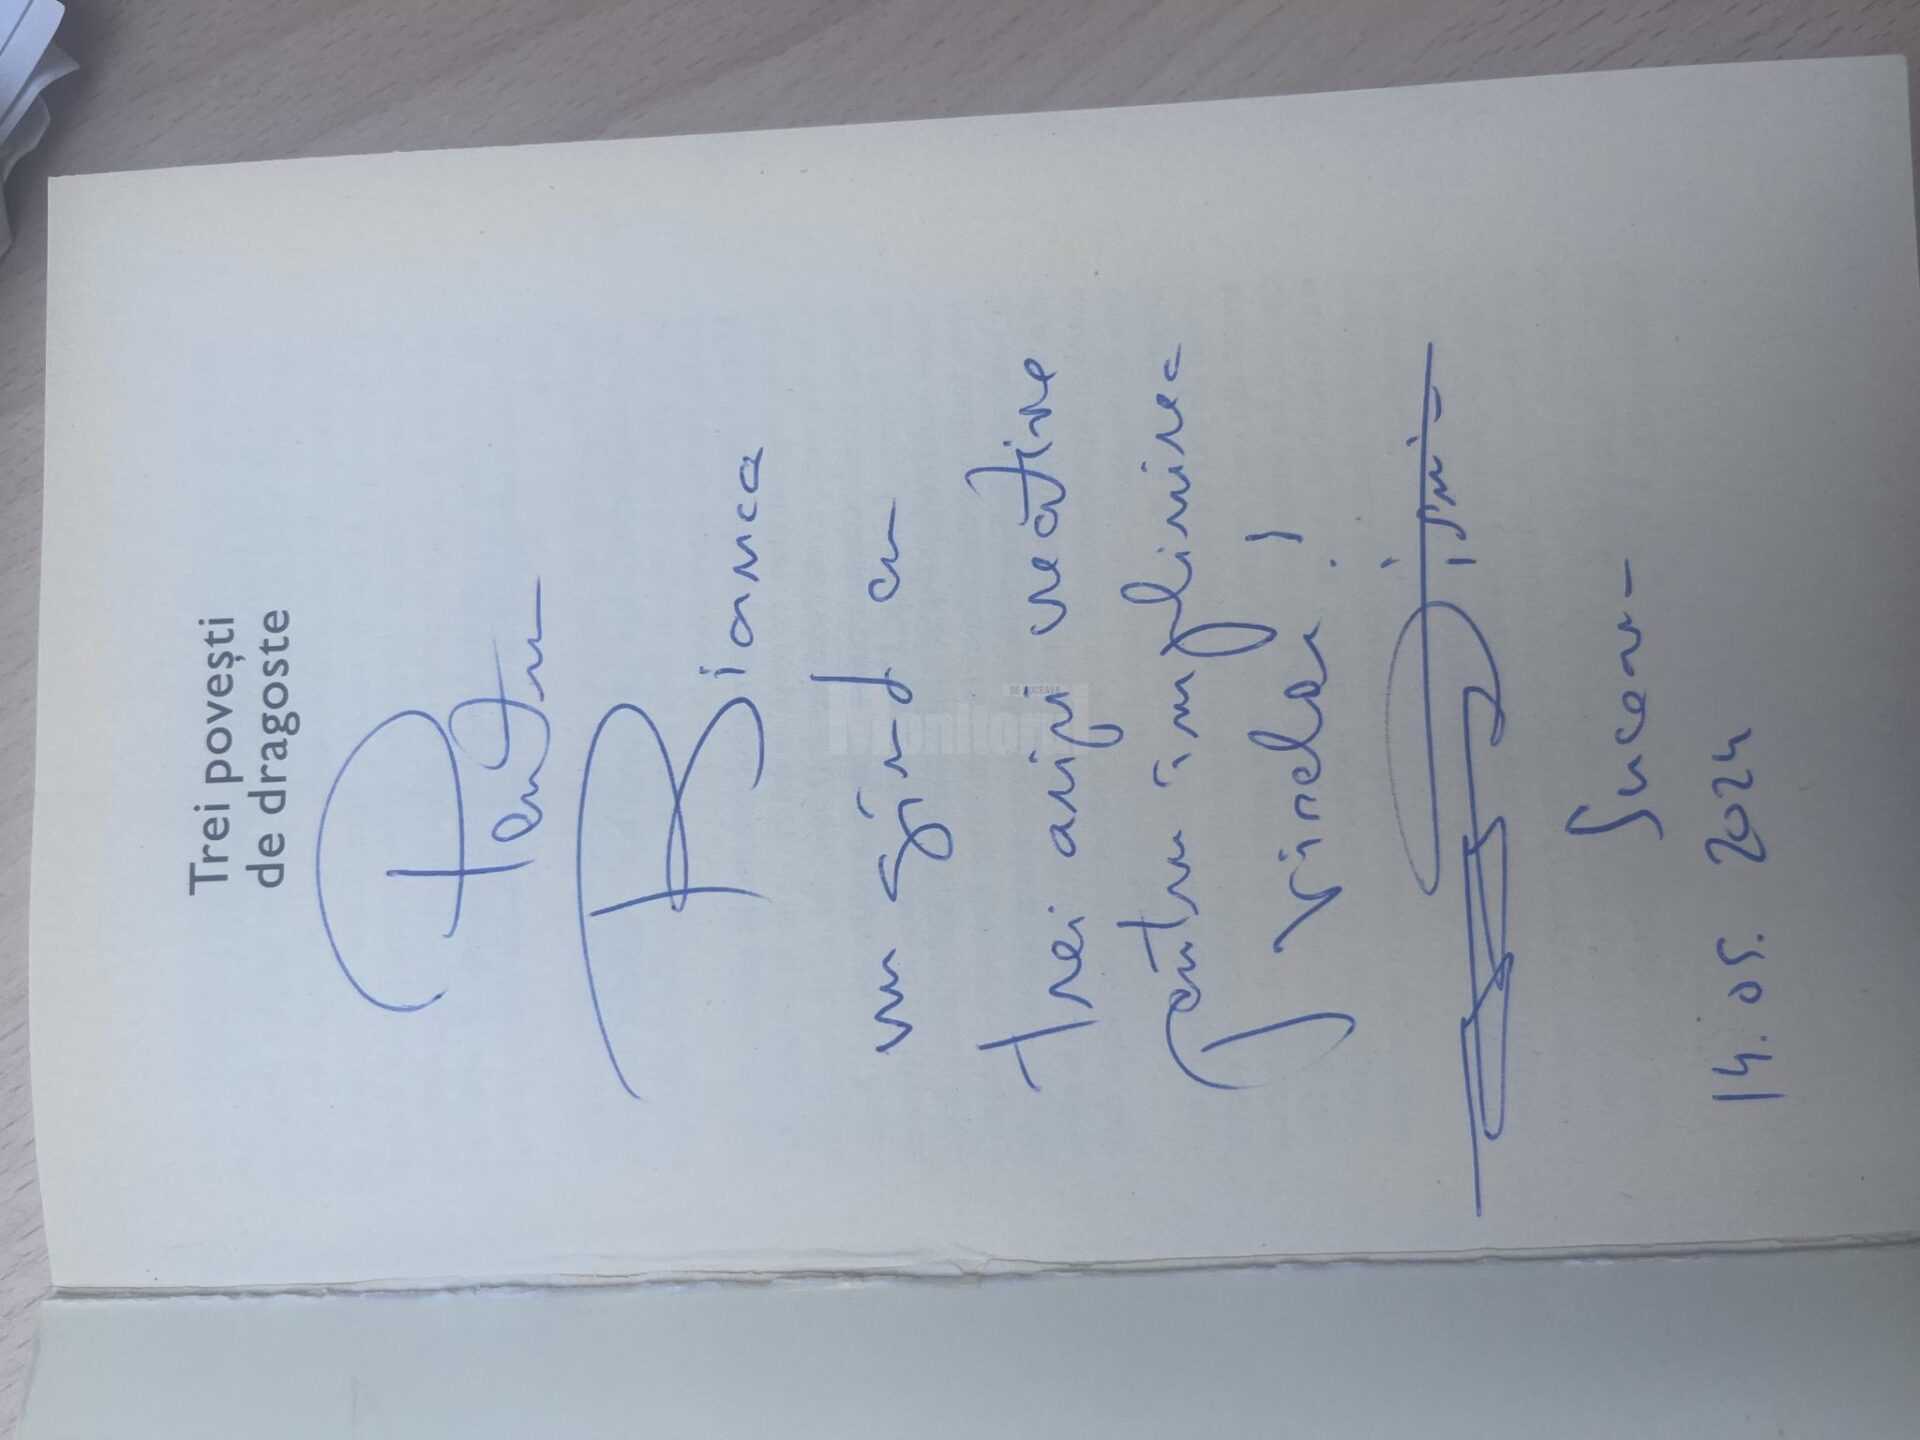 Trei povești
de dragoste
Pentru
Bianca
un gând cu
trei aripi creative
pentru împlinirea
viselor!
Suceava
14.05.2024
Monitorul
DE SUCEAVA